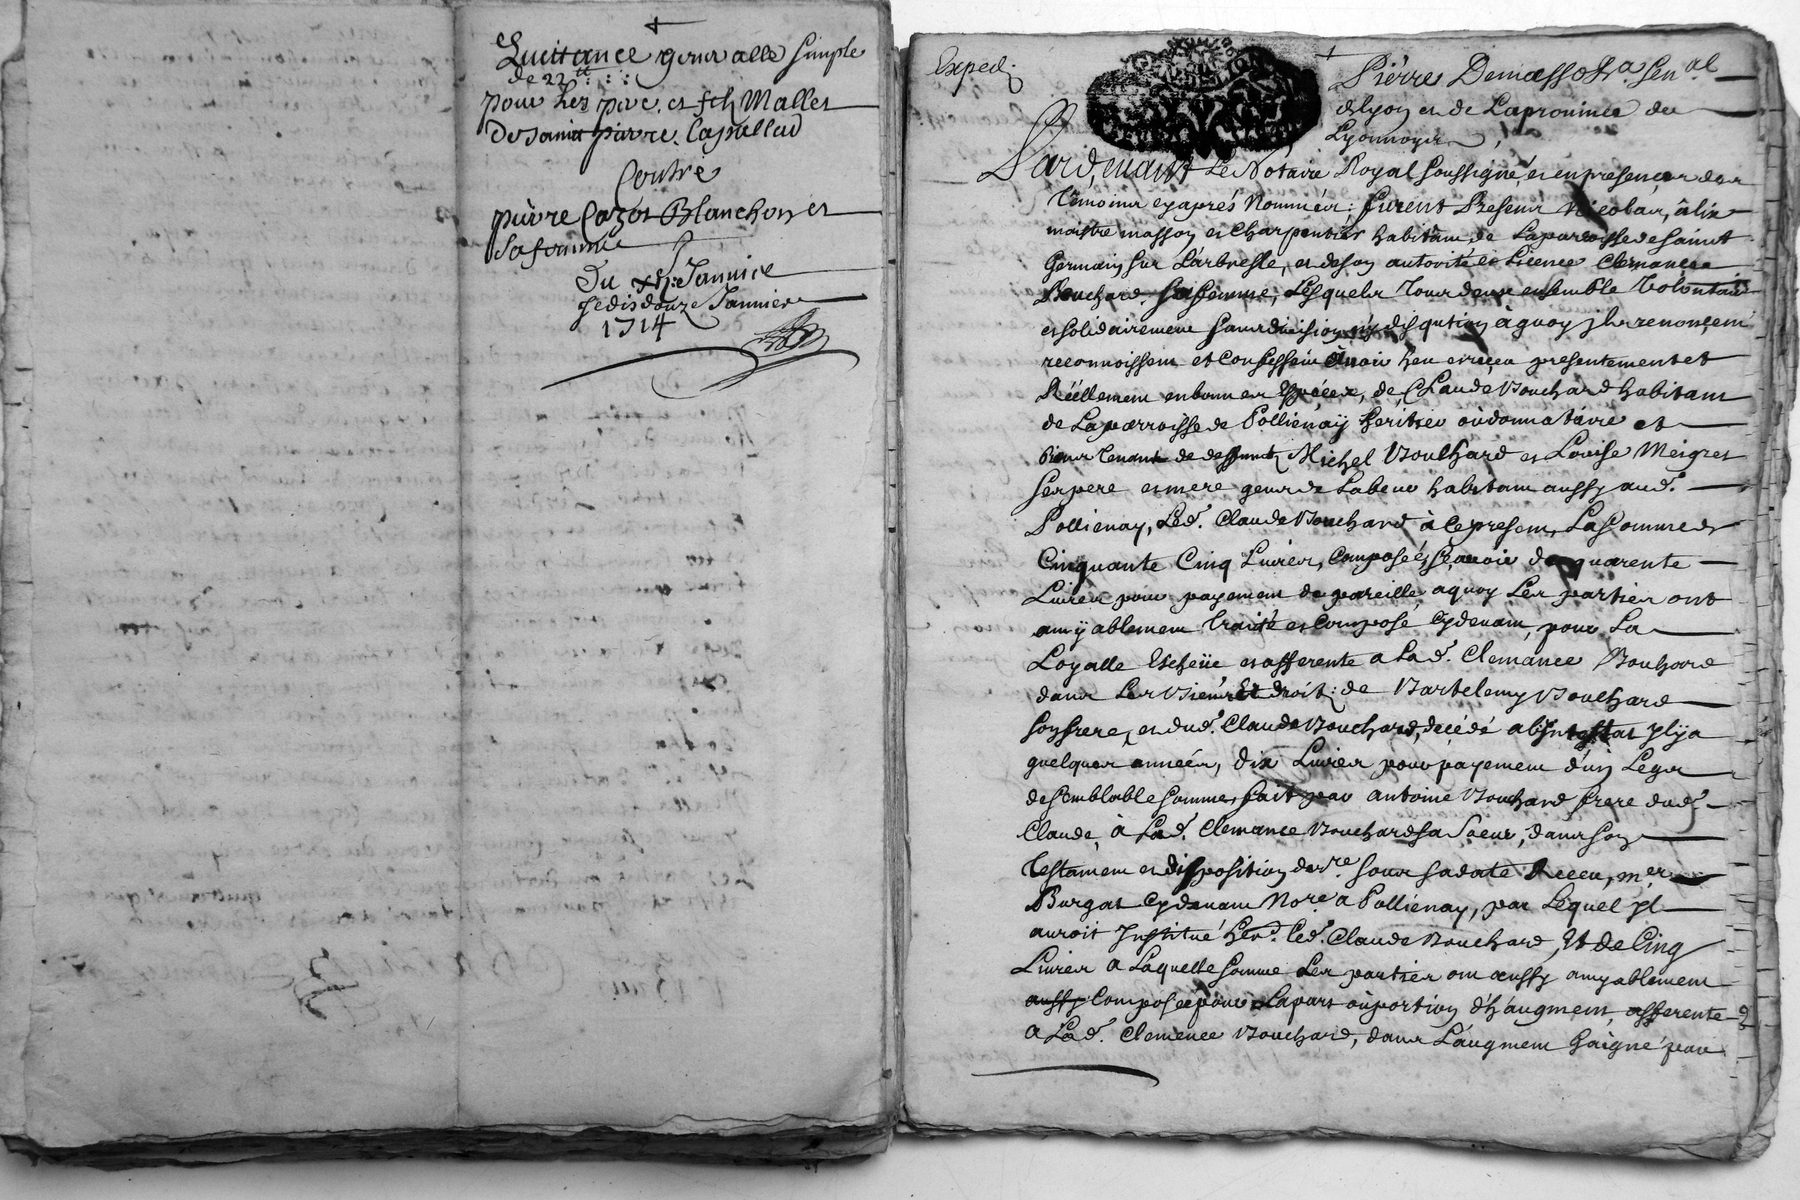 Quittance generalle simple
de 22tt
pour les pere et fils Mallet
de saint pierre lapallud
Contre
pierre Cazot Blanchon et
sa femme
Du xij: Janvier
je dis douze Janvier
1714
Exped.
Pierre Demasso sr. a Sen.al
de lyon et de La province de
Lyonnois,
Pardevant Le Notaire Royal soussigné, et en presence des
Temoins cy aprés Nommés; furent Presens Nicolas
maistre masson et Charpentier habitant de La parroisse de saint
Germain sur L'arbresle, et de son autorité et Licence Clemance
Bouchard sa femme, Lesquels Tous deux ensemble Volontair
et solidairement sans division ny disqution à quoy jls renonçent
reconnoissent et Confessent avoir heu et receu presentement et
Réellement en bonnes Espéces, de Claude Bouchard habitant
de La parroisse de Pollienaÿ heritier où donnataire et
Bien Tenant de deffunts Michel Bouchard et Louise Meigret
ses pere et mere gens de Labeur habitans aussy aud.
Pollienay, Led. Claude Bouchard à Ce present, La somme de
Cinquante Cinq Livres, Composée, sçavoir de quarente
Livres pour payement de pareille a quoy Les parties ont
amÿablement Traité et Composé Cydevant, pour La
Loyalle Escheüe et afferente a Lad. Clemance Bouchard
dans Les Biens Et droits de Bartelemy Bouchard
son frere, et dud. Claude Bouchard, decédé abintestat jl y a
quelques années, Dix Livres pour payement d'un Legs
de semblable somme, fait par Antoine Bouchard frere dud.
Claude, à Lad. Clemance Bouchard sa soeur, dans son
Testament et disposition der.re sous sa date Receu, m.e
Burgat Cydevant No.re a Pollienay, par Lequel jl
auroit Institué her. led. Claude Bouchard, Et de Cinq
Livres a Laquelle somme Les parties ont aussy amyablement
aussy Composé pour La part où portion d'haugment, afferente
a Lad. Clemence Bouchard, dans L'augment Gaigné par